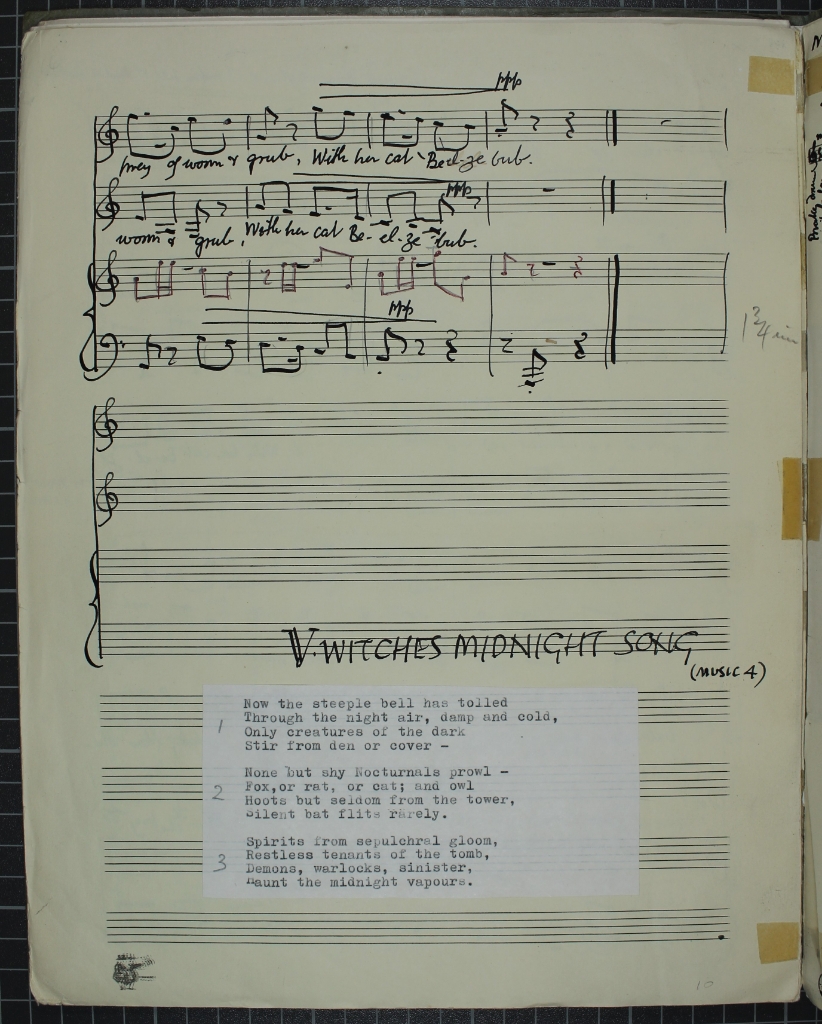 ppp
prey of worm & grub, With her cat Beel-ze bub.
ppp
worm & grub, With her cat Be-el-ze-bub.
ppp
1¾ min
V. WITCHES MIDNIGHT SONG
(MUSIC 4)
Now the steeple bell has tolled
1 Through the night air, damp and cold,
Only creatures of the dark
Stir from den or cover -
None but shy Nocturnals prowl -
2 Fox, or rat, or cat; and owl
Hoots but seldom from the tower,
Silent bat flits rarely.
Spirits from sepulchral gloom,
Restless tenants of the tomb,
3 Demons, warlocks, sinister,
Haunt the midnight vapours.
10